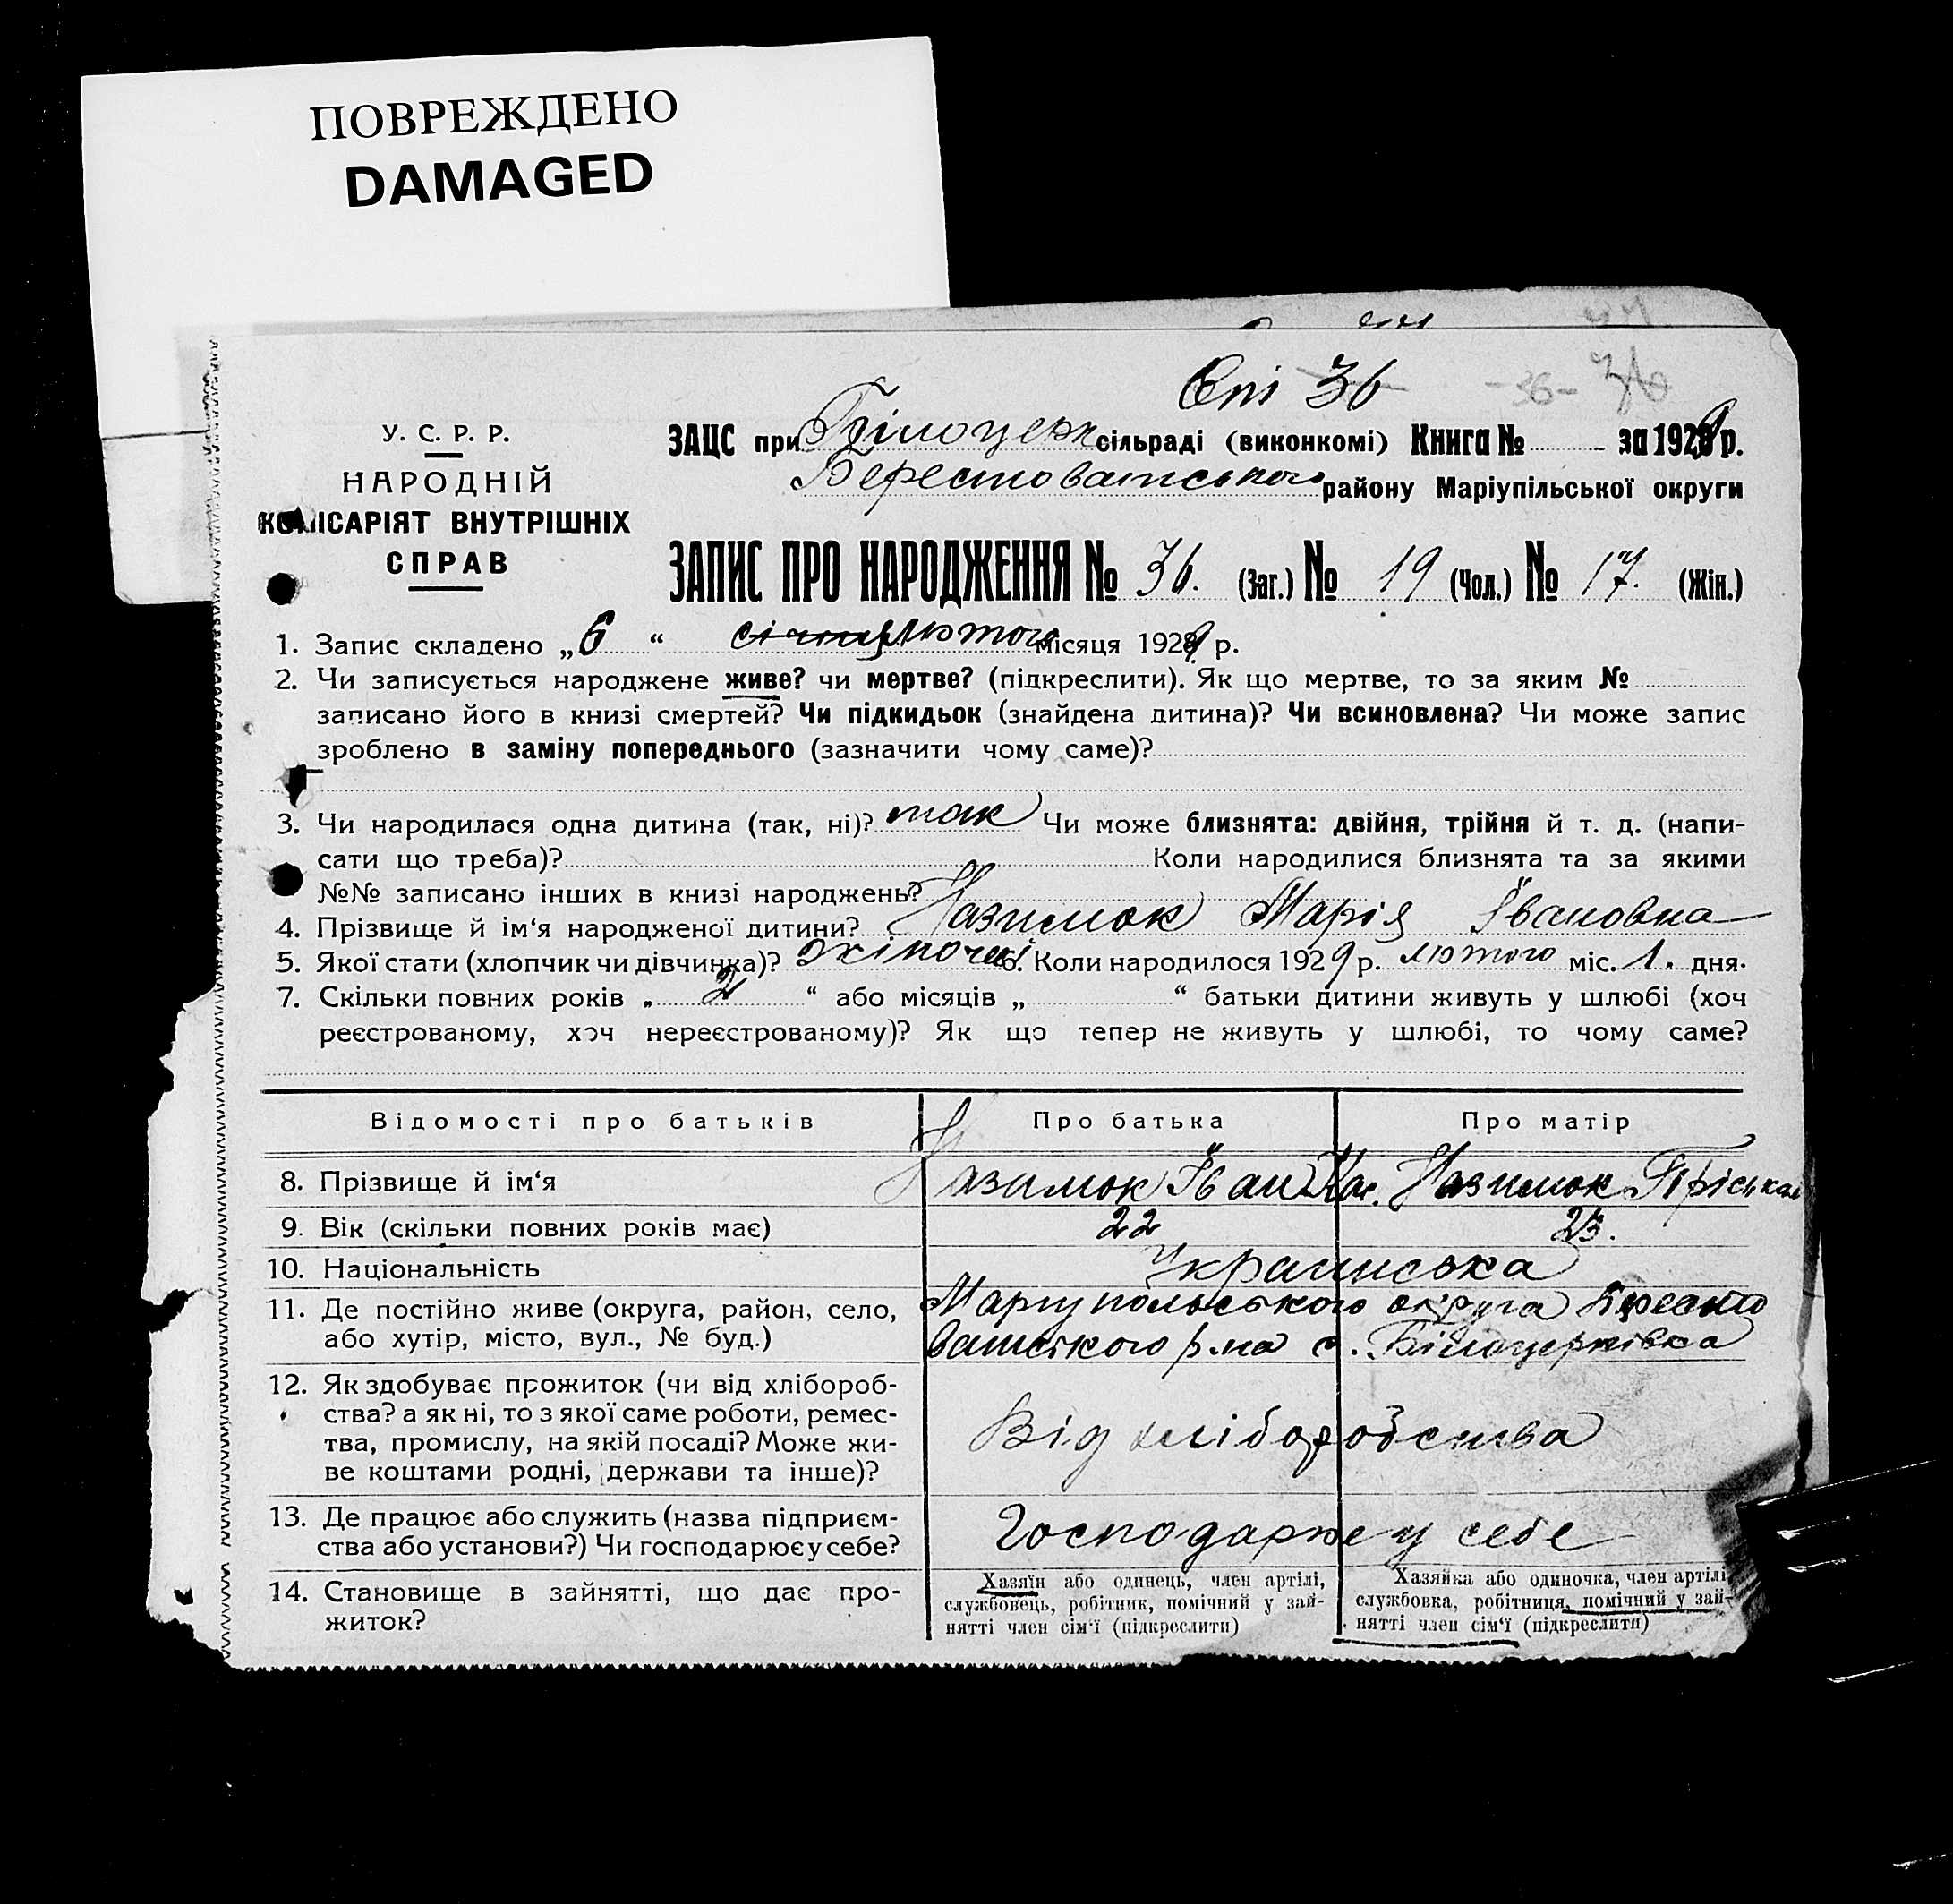 ПОВРЕЖДЕНО
DAMAGED
36
-36- 36
У. С. Р. Р.
НАРОДНІЙ
КОМІСАРІЯТ ВНУТРІШНІХ
СПРАВ
ЗАЦС при Білоцерк сільраді (виконкомі) Книга № за 1929 р.
Берестоватського району Маріупільської округи
ЗАПИС ПРО НАРОДЖЕННЯ № 36. (Заг.) № 19 (Чол.) № 17. (Жін.)
1. Запис складено „6“ січня лютого місяця 1929 р.
2. Чи записується народжене живе? чи мертве? (підкреслити). Як що мертве, то за яким №
записано його в книзі смертей? Чи підкидьок (знайдена дитина)? Чи всиновлена? Чи може запис
зроблено в заміну попереднього (зазначити чому саме)?
3. Чи народилася одна дитина (так, ні)? так Чи може близнята: двійня, трійня й т. д. (напи-
сати що треба)? Коли народилися близнята та за якими
№№ записано інших в книзі народжень?
4. Прізвище й ім‘я народженої дитини? Назимок Марія Івановна
5. Якої стати (хлопчик чи дівчинка)? жіночої 6. Коли народилося 1929 р. лютого міс. 1. дня.
7. Скільки повних років „ 2 “ або місяців „ “ батьки дитини живуть у шлюбі (хоч
реєстрованому, хоч нереєстрованому)? Як що тепер не живуть у шлюбі, то чому саме?
Відомості про батьків Про батька Про матір
8. Прізвище й ім‘я Назимок Іван Назимок
9. Вік (скільки повних років має) 22 23.
10. Національність Украинська
11. Де постійно живе (округа, район, село, Маріупольського округа Бересто
або хутір, місто, вул., № буд.) ватського р-на с. Білоцерківка
12. Як здобуває прожиток (чи від хлібороб-
ства? а як ні, то з якої саме роботи, ремес-
тва, промислу, на якій посаді? Може жи-
ве коштами родні, держави та інше)?
Від хліборобства
13. Де працює або служить (назва підприєм-
ства або установи?) Чи господарює у себе?
Господарює у себе
14. Становище в зайнятті, що дає про-
житок?
Хазяїн або одинець, член артілі,
службовець, робітник, помічний у зай-
нятті член сім‘ї (підкреслити)
Хазяйка або одиночка, член артілі
службовка, робітниця, помічний у зай-
нятті член сім‘ї (підкреслити)